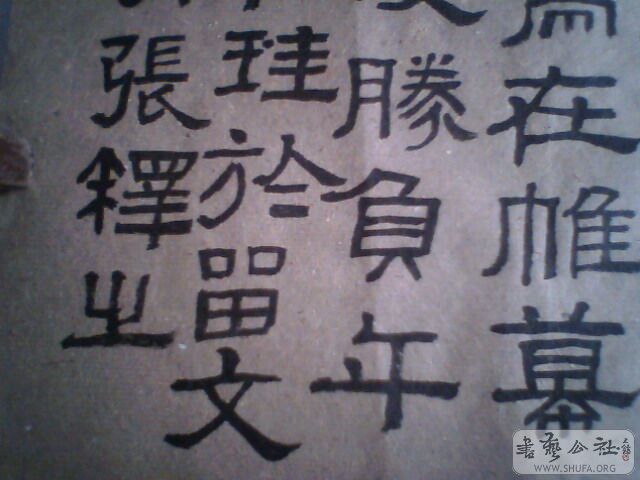 在帷幕
勝負千
珪於留文
張釋之
書藝公社
WWW.SHUFA.ORG